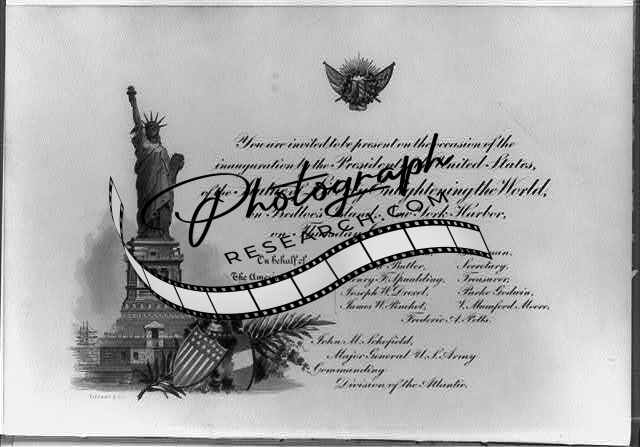 You are invited to be present on the occasion of the
inauguration by the President United States,
of the Enlightening the World,
on Bedloe's Island, New York Harbor,
on Thursday
On behalf of
The American
Butler, Secretary,
Henry F. Spaulding, Treasurer,
Joseph W. Drexel, Parke Godwin,
James W. Pinchot, V. Mumford Moore,
Frederic A. Potts.
John M. Schofield,
Major General U.S. Army
Commanding
Division of the Atlantic.
Photograph
RESEARCH.COM